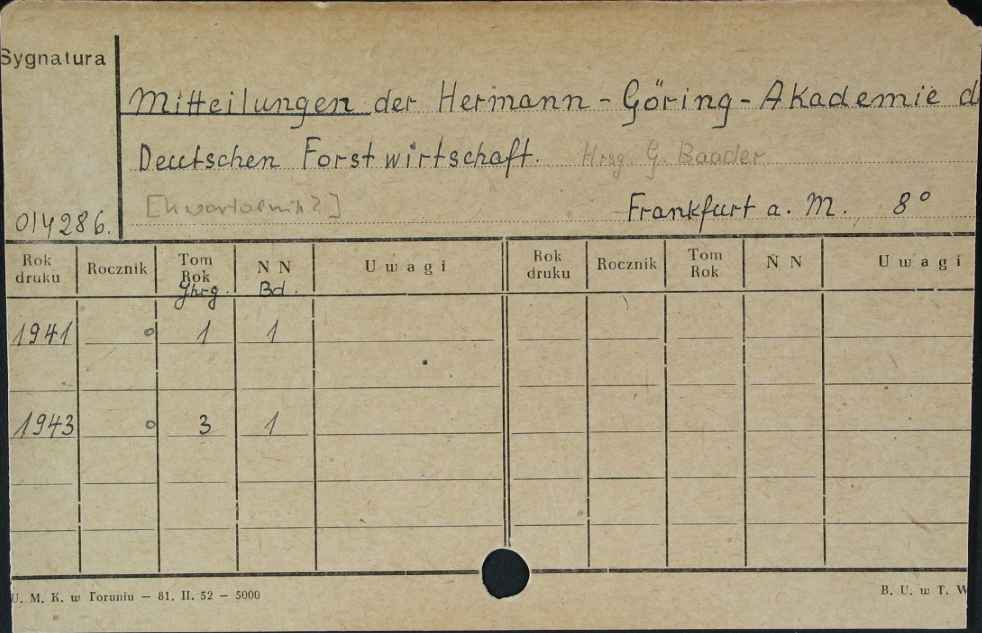 Sygnatura
Mitteilungen der Hermann-Göring-Akademie d
Deutschen Forstwirtschaft. Hrsg. G. Baader
[kwartalnik?]
014286. Frankfurt a. M. 8°
Rok druku Rocznik Tom Rok NN Uwagi Rok druku Rocznik Tom Rok NN Uwagi
Jhrg. Bd.
1941 o 1 1
1943 o 3 1
U. M. K. w Toruniu — 81. II. 52 — 5000 B. U. w T. W